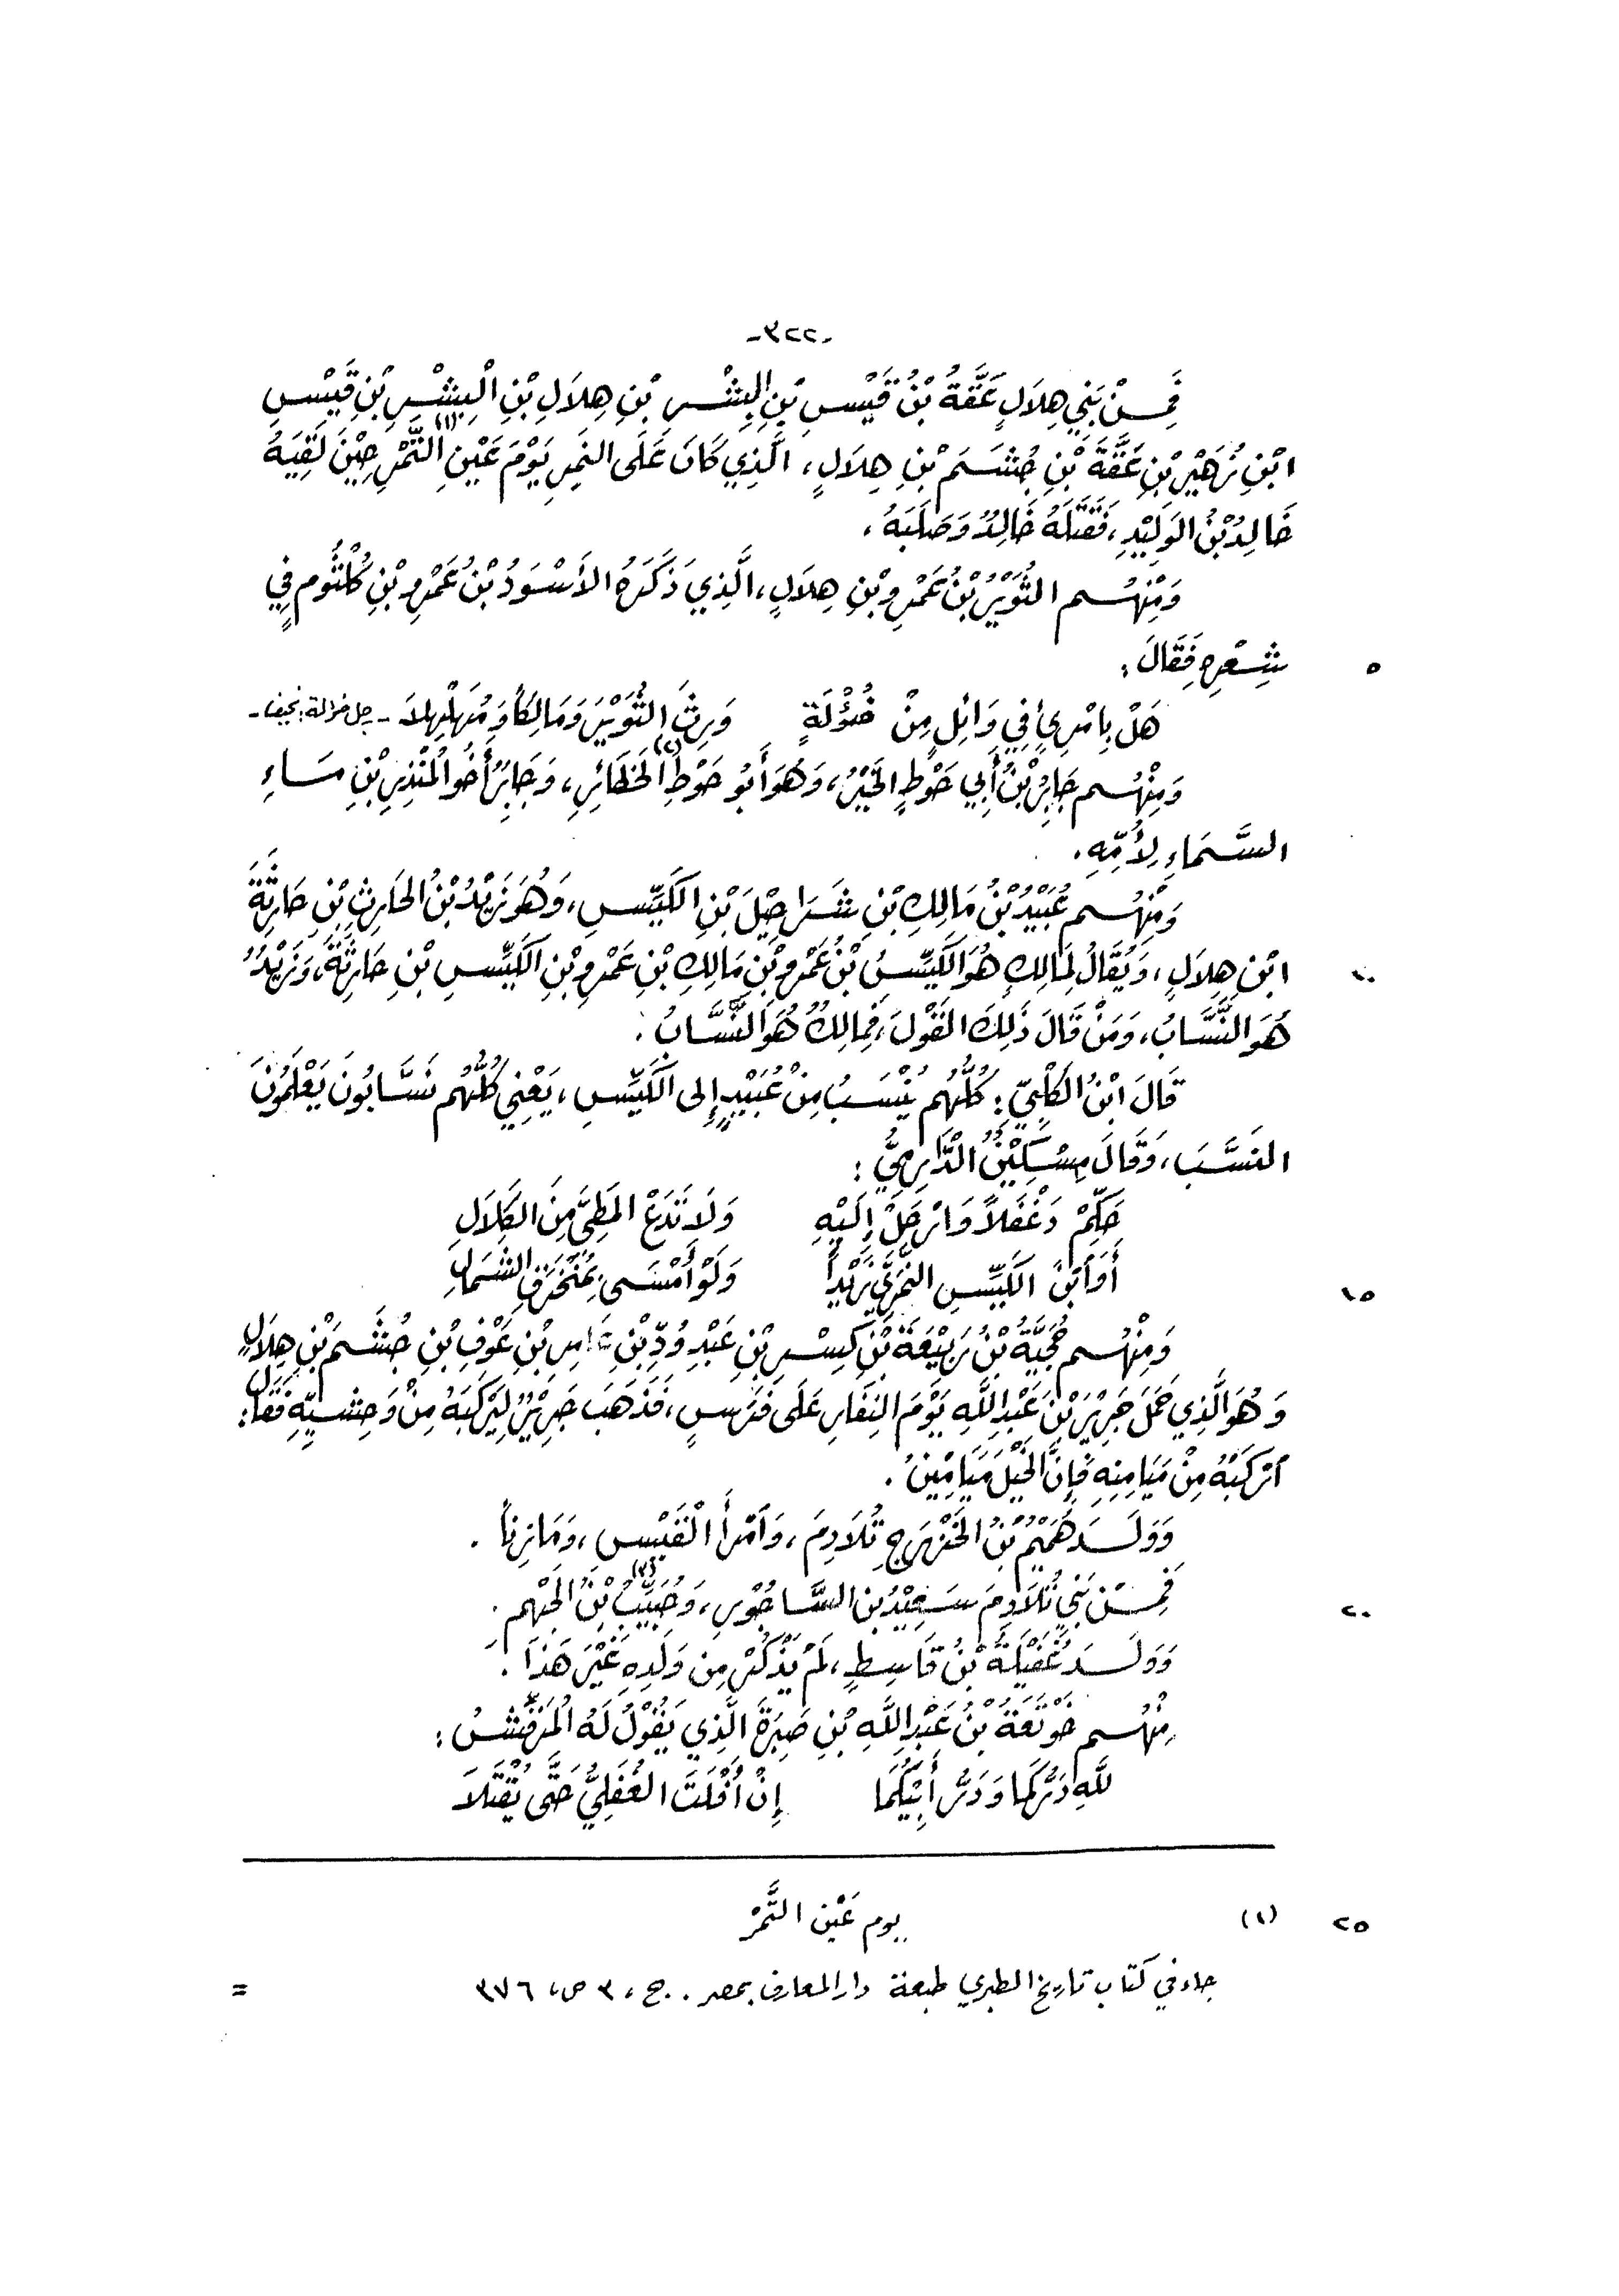 -٣٢٢-
فَمِنْ بَنِي هِلَالٍ عَقَّةُ بْنُ قَيْسِ بْنِ البِشْرِ بْنِ هِلَالِ بْنِ الْبِشْرِ بْنِ قَيْسِ
ابْنِ زُهَيْرِ بْنِ عَقَّةَ بْنِ جُشَمَ بْنِ هِلَالٍ، الَّذِي كَانَ عَلَى النَّمِرِ يَوْمَ عَيْنِ التَّمْرِ(١) حِيْنَ لَقِيَهُ
خَالِدُ بْنُ الوَلِيْدِ، فَقَتَلَهُ خَالِدٌ وَصَلَبَهُ،
وَمِنْهُم التُّوَيْرُ بْنُ عَمْرِو بْنِ هِلَالٍ، الَّذِي ذَكَرَهُ الأَسْوَدُ بْنُ عَمْرِو بْنِ كُلْثُومٍ فِي
شِعْرِهِ فَقَالَ: ٥
هَلْ بِامْرِئٍ فِي وَائِلٍ مِنْ خُؤْلَةٍ وَرِثَ التُّوَيْرَ وَمَالِكاً وَمُهَلْهِلاَ -
وَمِنْهُم جَابِرُ بْنُ أَبِي حَوْطٍ الخَيْرُ، وَهُوَ أَبُو حَوْطِ(٢) الحَظَائِرِ، وَجَابِرٌ أَخُو الْمُنْذِرِ بْنِ مَاءِ
السَّمَاءِ لِأُمِّهِ.
وَمِنْهُم عُبَيْدُ بْنُ مَالِكِ بْنِ شَرَاحِيْلَ بْنِ الكَيِّسِ، وَهُوَ زَيْدُ بْنُ الحَارِثِ بْنِ حَارِثَةَ
ابْنِ هِلَالٍ، وَيُقَالُ لِمَالِكٍ هُوَ الكَيِّسُ بْنُ عَمْرِو بْنِ مَالِكِ بْنِ عَمْرِو بْنِ الكَيِّسِ بْنِ حَارِثَةَ، وَزَيْدٌ ١٠
هُوَ النَّسَّابُ، وَمَنْ قَالَ ذَلِكَ القَوْلَ، فَمَالِكٌ هُوَ النَّسَّابُ.
قَالَ ابْنُ الكَلْبِيّ: كُلُّهُم يُنْسَبُ مِنْ عُبَيْدٍ إِلى الكَيِّسِ، يَعْنِي كُلُّهُم نَسَّابُونَ يَعْلَمُونَ
النَسَبَ، وَقَالَ مِسْكِيْنٌ الدَّارِمِيُّ:
حَكِّمْ دَغْفَلاً وَارْحَلْ إِلَيْهِ وَلَا تَدَعْ المَطِيَّ مِنَ الكَلَالِ
أَوِ ابْنَ الكَيِّسِ النَّمَرِيَّ زَيْداً وَلَوْ أَمْسَى بِمُنْخَرَقِ الشَّمَالِ ١٥
وَمِنْهُم حُجَيَّةُ بْنُ رَبِيْعَةَ بْنِ كِسْرِ بْنِ عَبْدِ وُدِّ بْنِ بْنِ عَوْفِ بْنِ جُشَمَ بْنِ هِلَالٍ
وَهُوَ الَّذِي حَمَلَ جَرِيْرَ بْنَ عَبْدِ اللَّهِ يَوْمَ النِّفَارِ عَلَى فَرَسٍ، فَذَهَبَ جَرِيْرٌ لِيَرْكَبَهُ مِنْ وَحْشِيِّهِ فَقَالَ:
ارْكَبْهُ مِنْ مَيَامِنِهِ فَإِنَّ الخَيْلَ مَيَامِيْنُ.
وَوَلَدَ هَمِيْمُ بْنُ الخَزْرَجِ تُلَادِمَ، وَامْرأَ الْقَيْسِ، وَمَازِناً.
فَمِنْ بَنِي تُلَادِمَ سَعِيْدُ بْنُ السَّاجُوْرِ، وَحُبَيِّبُ(٣) بْنُ الجَهْمِ. ٢٠
وَوَلَدَ غُفَيْلَةُ بْنُ قَاسِطٍ، لَمْ يَذْكُرْ مِن وَلَدِهِ غَيْرَ هَذَا.
مِنْهُم خَوْتَعَةُ بْنُ عَبْدِ اللَّهِ بْنِ صَبِرَةَ الَّذِي يَقُوْلُ لَهُ المُرَقِّشُ:
لِلَّهِ دَرُّكُمَا وَدَرُّ أَبِيْكُمَا إِنْ أَفْلَتَ الغُفَلِيُّ حَتَّى يُقْتَلَا
(١) يوم عَيْن التَّمْرْ ٢٥
جاء في كتاب تاريخ الطبري طبعة دار المعارف بمصر. ج، ٣ ص، ٣٧٦ =